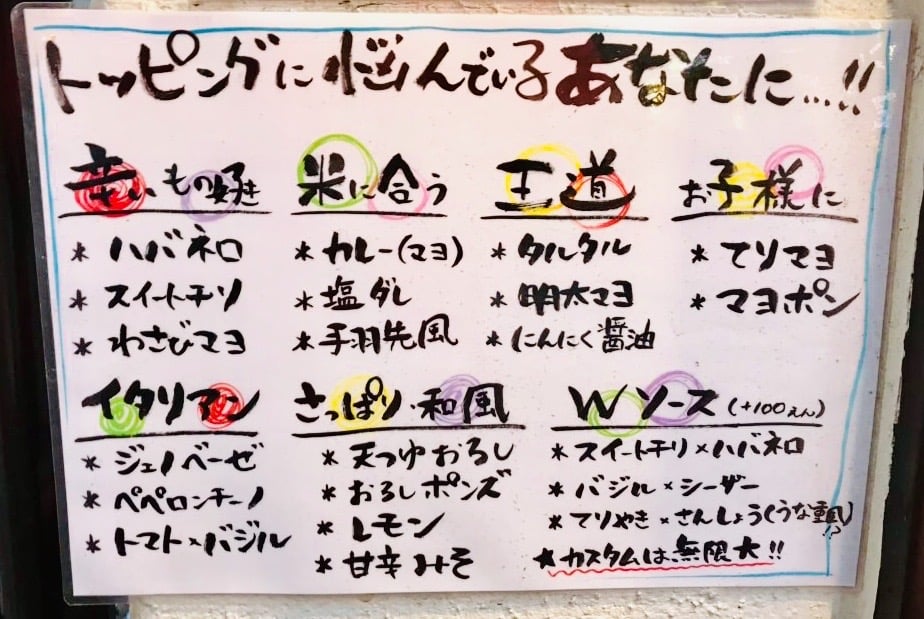 トッピングに悩んでいるあなたに…!!
辛いもの好き
* ハバネロ
* スイートチリ
* わさびマヨ
米に合う
* カレー(マヨ)
* 塩ダレ
* 手羽先風
王道
* タルタル
* 明太マヨ
* にんにく醤油
お子様に
* てりマヨ
* マヨポン
イタリアン
* ジェノベーゼ
* ペペロンチーノ
* トマト×バジル
さっぱり・和風
* 天つゆおろし
* おろしポンズ
* レモン
* 甘辛みそ
Wソース(+100えん)
* スイートチリ×ハバネロ
* バジル×シーザー
* てりやき×さんしょう(うな重風)!?
★カスタムは無限大!!